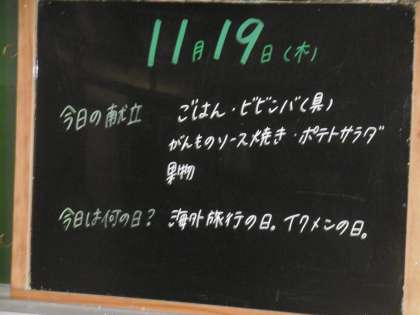 11月19日(木)
今日の献立 ごはん・ビビンバ(具)
がんものソース焼き・ポテトサラダ
果物
今日は何の日? 海外旅行の日。イクメンの日。